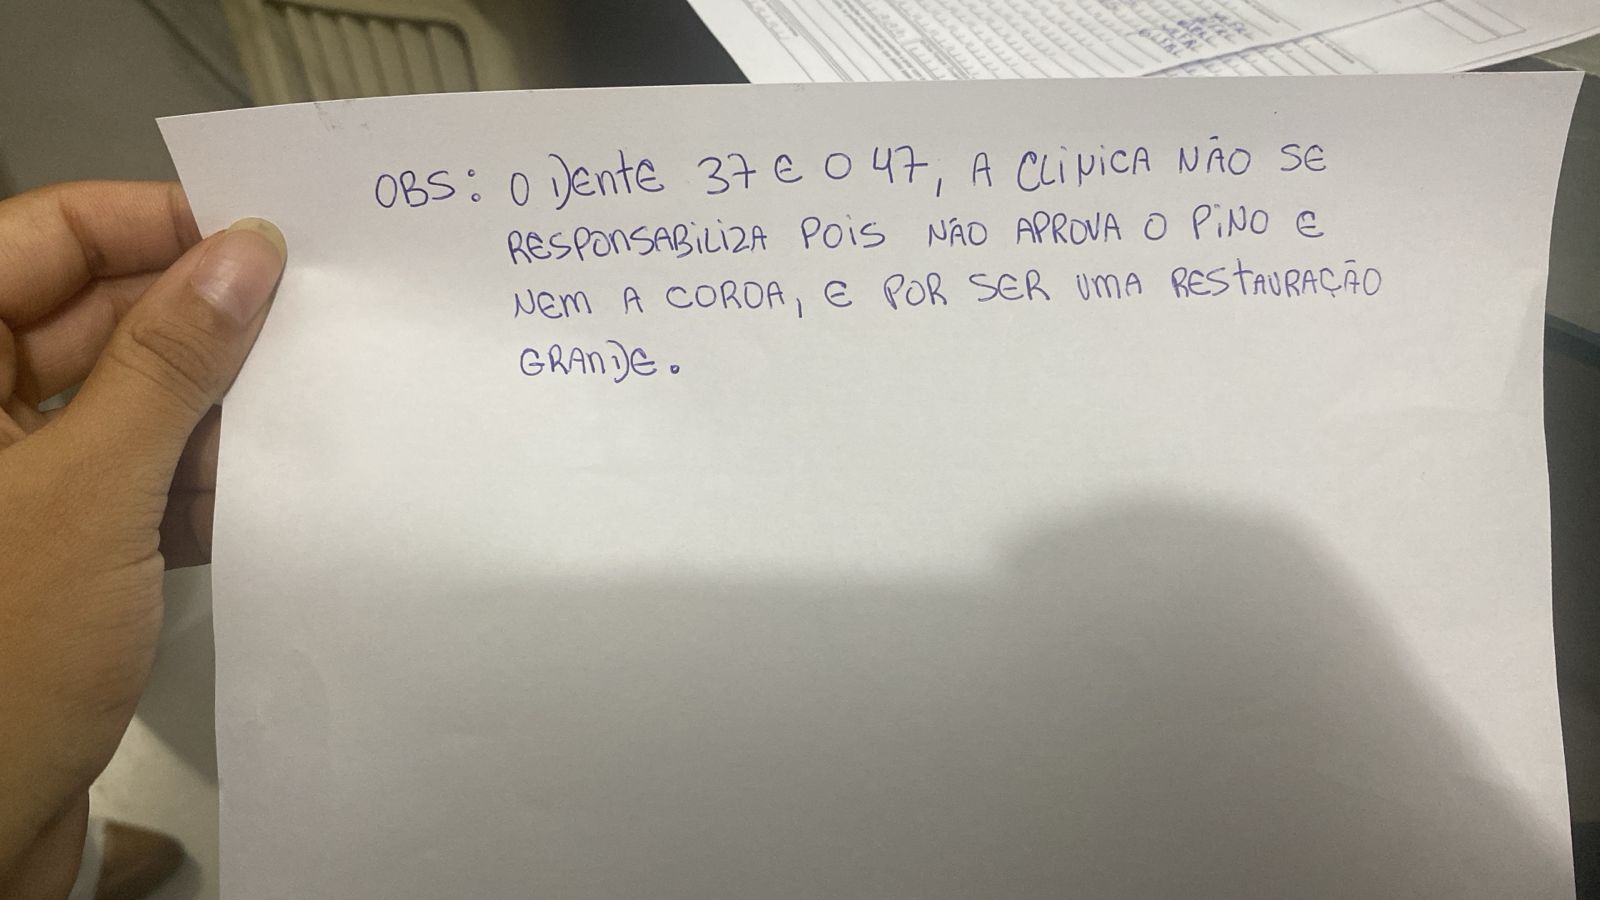 OBS: O DENTE 37 E O 47, A CLINICA NÃO SE
RESPONSABILIZA POIS NÃO APROVA O PINO E
NEM A COROA, E POR SER UMA RESTAURAÇÃO
GRANDE.